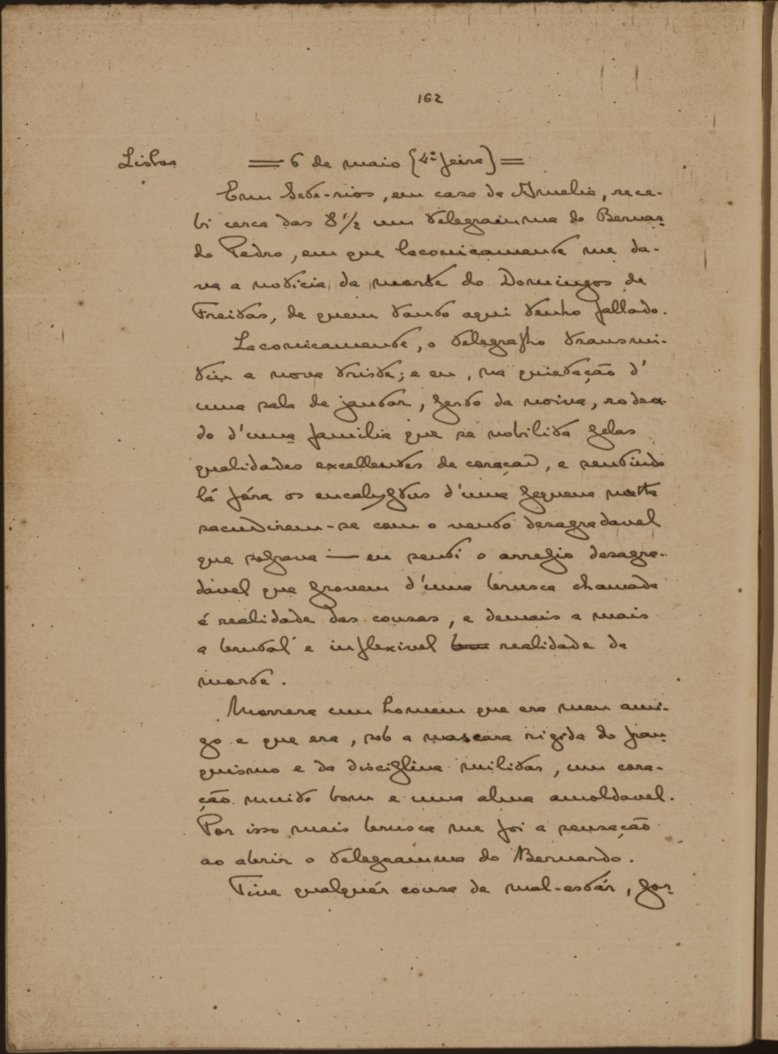 162
Lisboa = 6 de maio (4ª feira) =
Em Sete-rios, em casa da Amelia, rece-
bi cerca das 8 1/2 um telegramma do Bernar-
do Pedro, em que laconicamente me da-
va a noticia da morte do Domingos de
Freitas, de quem tanto aqui tenho fallado.
Laconicamente, o telegrapho transmi-
tiu a nova triste; e eu, na quietação d'
uma sala de jantar, perto da noiva, rodea-
do d'uma familia que se nobilita pelas
qualidades excellentes de coração, e sentindo
lá fóra os eucalyptus d'uma pequena matta
sacudirem-se com o vento desagradavel
que soprava — eu senti o arrepio desagra-
davel que provem d'uma brusca chamada
á realidade das cousas, e demais a mais
a brutal e inflexivel realidade da
morte.
Morrera um homem que era meu ami-
go e que era, sob a mascara rigida do
quismo e da disciplina militar, um cora-
ção muito bom e uma alma amoldavel.
Por isso mais brusca me foi a sensação
ao abrir o telegramma do Bernardo.
Tive qualquér cousa de mal-estár, por